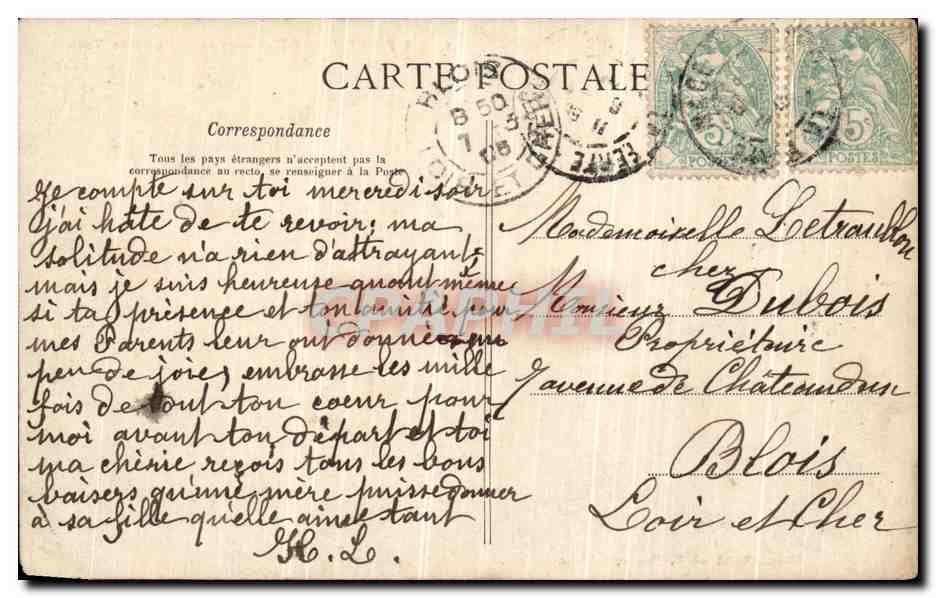 CARTE POSTALE
Correspondance
Tous les pays étrangers n'acceptent pas la
correspondance au recto, se renseigner à la Poste
Je compte sur toi mercredi soir
j'ai hâte de te revoir; ma
solitude n'a rien d'attrayant
mais je suis heureuse quant même
si ta présence et ton amitié pour
mes Parents leur ont donné un
peu de joie, embrasse les mille
fois de tout ton cœur pour
moi avant ton départ et toi
ma chérie reçois tous les bons
baisers qu'une mère puisse donner
à sa fille qu'elle aime tant
H. L.
Mademoiselle
chez
Monsieur Dubois
Propriétaire
7 avenue de Châteaudun
Blois
Loir et Cher
BLOIS
LOIR-ET-CHER
5c 5c
POSTES POSTES
CPAPHIL